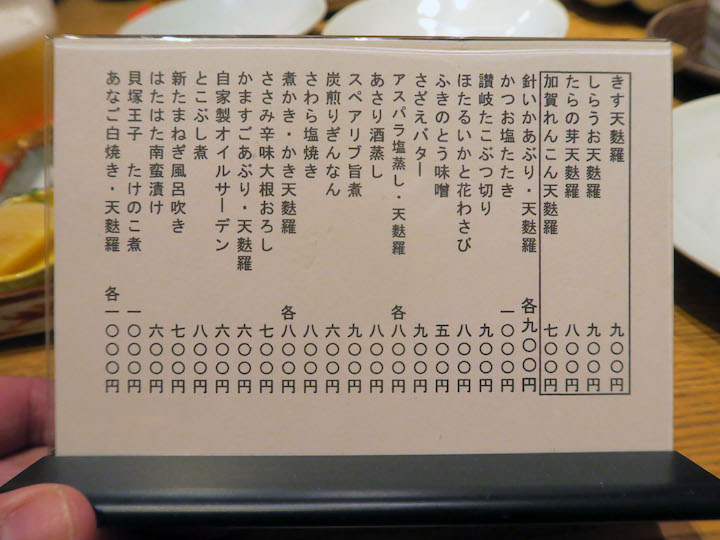 きす天麩羅 九〇〇円
しらうお天麩羅 九〇〇円
たらの芽天麩羅 八〇〇円
加賀れんこん天麩羅 七〇〇円
針いかあぶり・天麩羅 各九〇〇円
かつお塩たたき 一〇〇〇円
讃岐たこぶつ切り 九〇〇円
ほたるいかと花わさび 八〇〇円
ふきのとう味噌 五〇〇円
さざえバター 九〇〇円
アスパラ塩蒸し・天麩羅 各八〇〇円
あさり酒蒸し 八〇〇円
スペアリブ旨煮 九〇〇円
炭煎りぎんなん 六〇〇円
さわら塩焼き 八〇〇円
煮かき・かき天麩羅 各八〇〇円
ささみ辛味大根おろし 七〇〇円
かますごあぶり・天麩羅 六〇〇円
自家製オイルサーデン 六〇〇円
とこぶし煮 八〇〇円
新たまねぎ風呂吹き 七〇〇円
はたはた南蛮漬け 六〇〇円
貝塚王子 たけのこ煮 一〇〇〇円
あなご白焼き・天麩羅 各一〇〇〇円